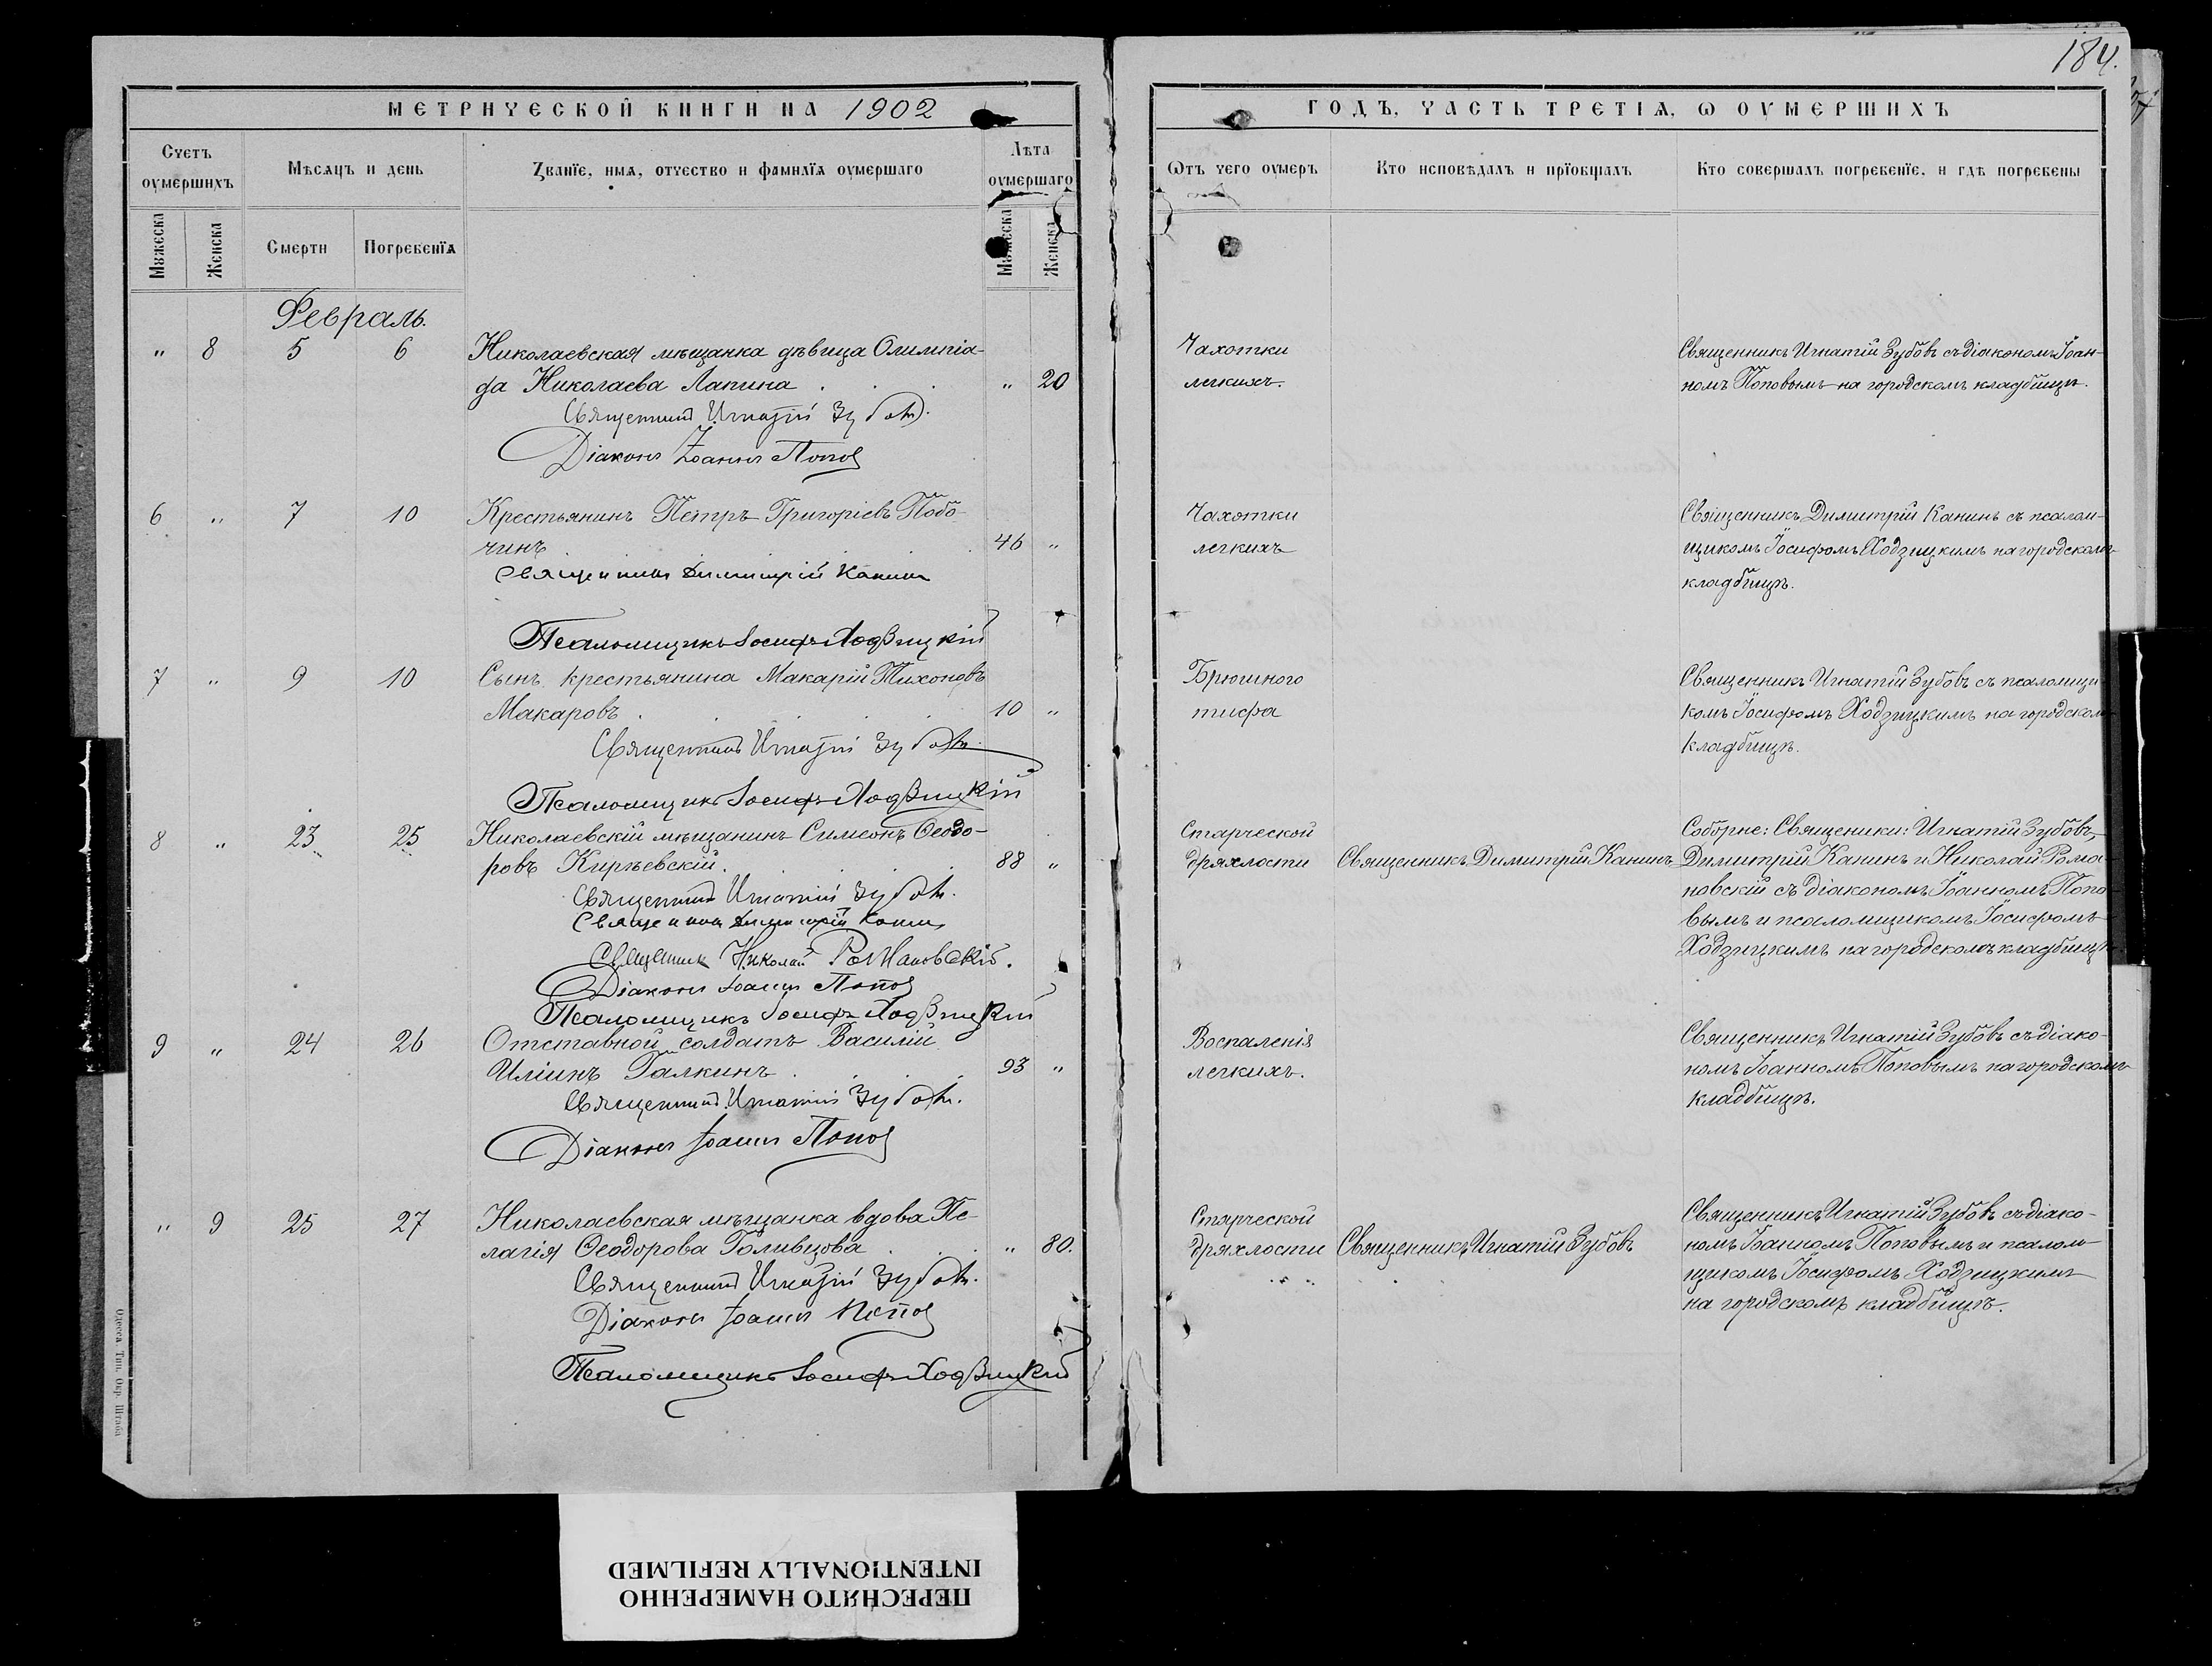 184.
МЕТРИЧЕСКОЙ КНИГИ НА 1902
ГОДЪ, ЧАСТЬ ТРЕТІѦ, Ѡ ОУМЕРШИХЪ
Счетъ оумершихъ
Мѣсѧцъ и день
Званїе, имѧ, отчество и фамилїѧ оумершаго
Лѣта оумершаго
Ѿтъ чего оумеръ
Кто исповѣдалъ и прїобщалъ
Кто совершалъ погребенїе, и гдѣ погребены
Мꙋжеска
Женска
Смерти
Погребенїѧ
Мꙋжеска
Женска
Февраль.
" 8 5 6 Николаевская мѣщанка дѣвица Олимпіа-
да Николаева Лапина . . . " 20
Священникъ Игнатій Зубовъ.
Діаконъ Іоаннъ Поповъ
Чахотки
легкихъ.
Священникъ Игнатій Зубовъ съ діакономъ Іоан-
номъ Поповымъ на городскомъ кладбищѣ.
6 " 7 10 Крестьянинъ Петръ Григоріевъ Побо-
чинъ . . . . 46 "
Священникъ Димитрій Канинъ
Псаломщикъ Іосифъ Ходзицкій
Чахотки
легкихъ
Священникъ Димитрій Канинъ съ псалом-
щикомъ Іосифомъ Ходзицкимъ на городскомъ
кладбищѣ.
7 " 9 10 Сынъ крестьянина Макарій Тихоновъ
Макаровъ . . . . . 10 "
Священникъ Игнатій Зубовъ.
Псаломщикъ Іосифъ Ходзицкій
Брюшного
тифа
Священникъ Игнатій Зубовъ съ псаломщи-
комъ Іосифомъ Ходзицкимъ на городскомъ
кладбищѣ.
8 " 23 25 Николаевскій мѣщанинъ Симеонъ Ѳеодо-
ровъ Кирѣевскій . . . 88 "
Священникъ Игнатій Зубовъ.
Священникъ Димитрій Канинъ
Священникъ Николай Романовскій.
Діаконъ Іоаннъ Поповъ
Псаломщикъ Іосифъ Ходзицкій
Старческой
дряхлости
Священникъ Димитрій Канинъ
Соборне: Священики: Игнатій Зубовъ,
Димитрій Канинъ и Николай Рома-
новскій съ діакономъ Іоанномъ Попо-
вымъ и псаломщикомъ Іосифомъ
Ходзицкимъ на городскомъ кладбищѣ
9 " 24 26 Отставной солдатъ Василій
Иліинъ Галкинъ . . . 93 "
Священникъ Игнатій Зубовъ.
Діаконъ Іоаннъ Поповъ
Воспаленія
легкихъ.
Священникъ Игнатій Зубовъ съ діако-
номъ Іоанномъ Поповымъ на городскомъ
кладбищѣ.
" 9 25 27 Николаевская мѣщанка вдова Пе-
лагія Ѳеодорова Голивцова . . . " 80.
Священникъ Игнатій Зубовъ.
Діаконъ Іоаннъ Поповъ
Псаломщикъ Іосифъ Ходзицкій
Старческой
дряхлости
Священникъ Игнатій Зубовъ
Священникъ Игнатій Зубовъ съ діако-
номъ Іоанномъ Поповымъ и псалом-
щикомъ Іосифомъ Ходзицкимъ
на городскомъ кладбищѣ.
Одесса Тип. Окр. Штаба
ПЕРЕСНЯТО НАМЕРЕННО
INTENTIONALLY REFILMED